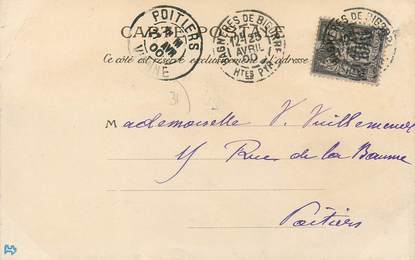 CARTE POSTALE
Ce côté est réservé exclusivement à l'adresse
POITIERS
VIENNE
BAGNÈRES DE BIGORRE
12 25
AVRIL
00
HTES PYR
31
Mademoiselle V. Vuillemenot
Rue de la Baume
Poitiers